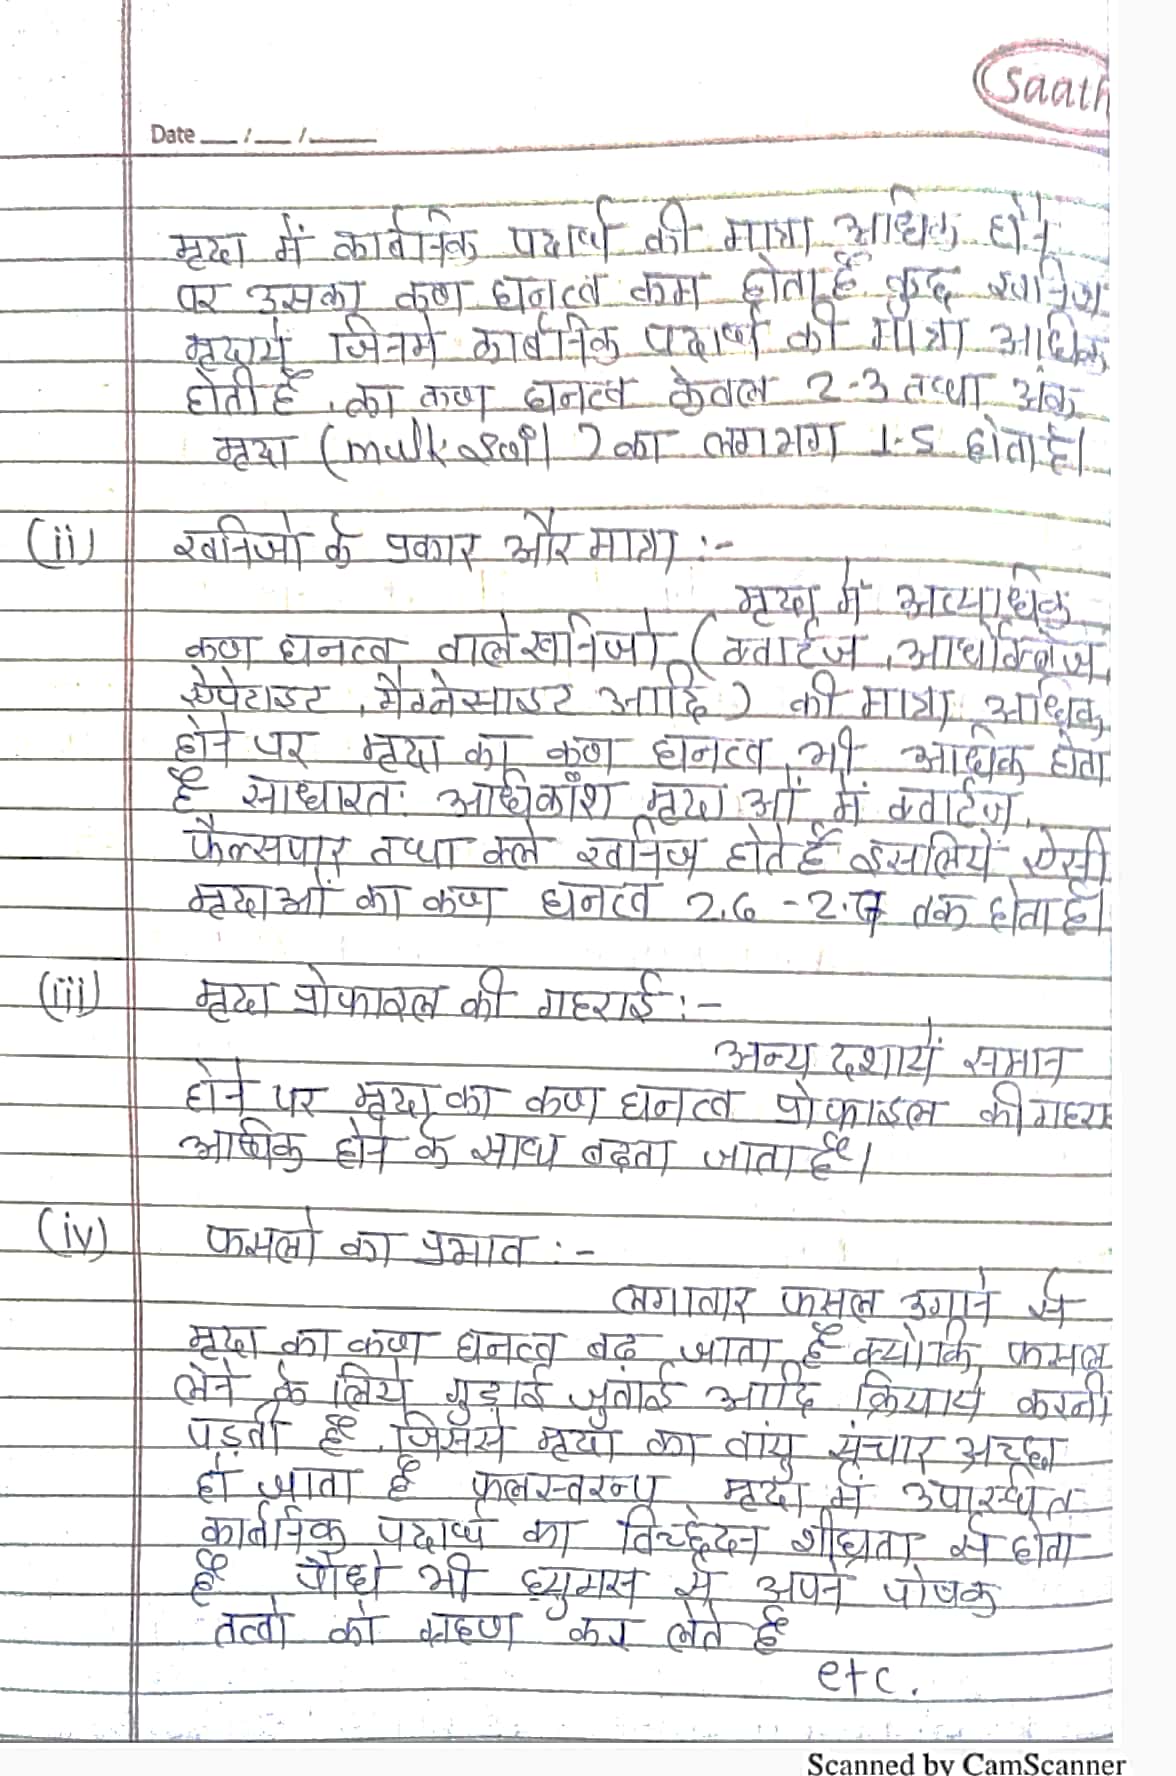 Saath
Date __/__/____
मृदा में कार्बनिक पदार्थ की मात्रा अधिक होने
पर उसका कण घनत्व कम होता है कुछ खनिज
मृदायें जिनमें कार्बनिक पदार्थ की मात्रा अधिक
होती है, का कण घनत्व केवल 2-3 तथा
मृदा ( ) का लगभग 1.5 होता है।
(ii) खनिजो के प्रकार और मात्रा :-
मृदा में अत्याधिक
कण घनत्व वाले खनिजो (क्वार्टज, आर्थोक्लेज,
ऐपेटाइट, मैग्नेसाइट आदि) की मात्रा अधिक
होने पर मृदा का कण घनत्व भी अधिक होता
है साधारतः अधिकाँश मृदाओं में क्वार्टज,
फैल्सपार तथा क्ले खनिज होते हैं इसलिये ऐसी
मृदाओं का कण घनत्व 2.6 - 2.7 तक होता है।
(iii) मृदा प्रोफाइल की गहराई :-
अन्य दशायें समान
होने पर मृदा का कण घनत्व प्रोफाइल की गहरा
अधिक होने के साथ बढता जाता है।
(iv) फसलो का प्रभाव :-
लगातार फसल उगाने से
मृदा का कण घनत्व बढ़ जाता है क्योकि फसल
लेने के लिये गुड़ाई जुताई आदि क्रियायें करनी
पड़ती है, जिससे मृदा का वायु संचार अच्छा
हो जाता है फलस्वरूप मृदा में उपस्थित
कार्बनिक पदार्थ का विच्छेदन शीघ्रता से होता
है पौधे भी ह्युमस से अपने पोषक
तत्वो को ग्रहण कर लेते है
etc.
Scanned by CamScanner